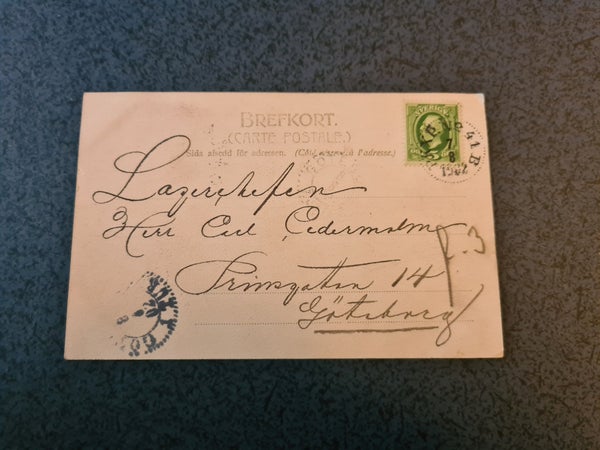 BREFKORT.
(CARTE POSTALE.)
Sida afsedd för adressen. (Côté réservé à l'adresse.)
SVERIGE
PKXP No 41 B
7
8
1902
Lagerchefen
Herr Carl Cedermalm
Prinsgatan 14
Göteborg